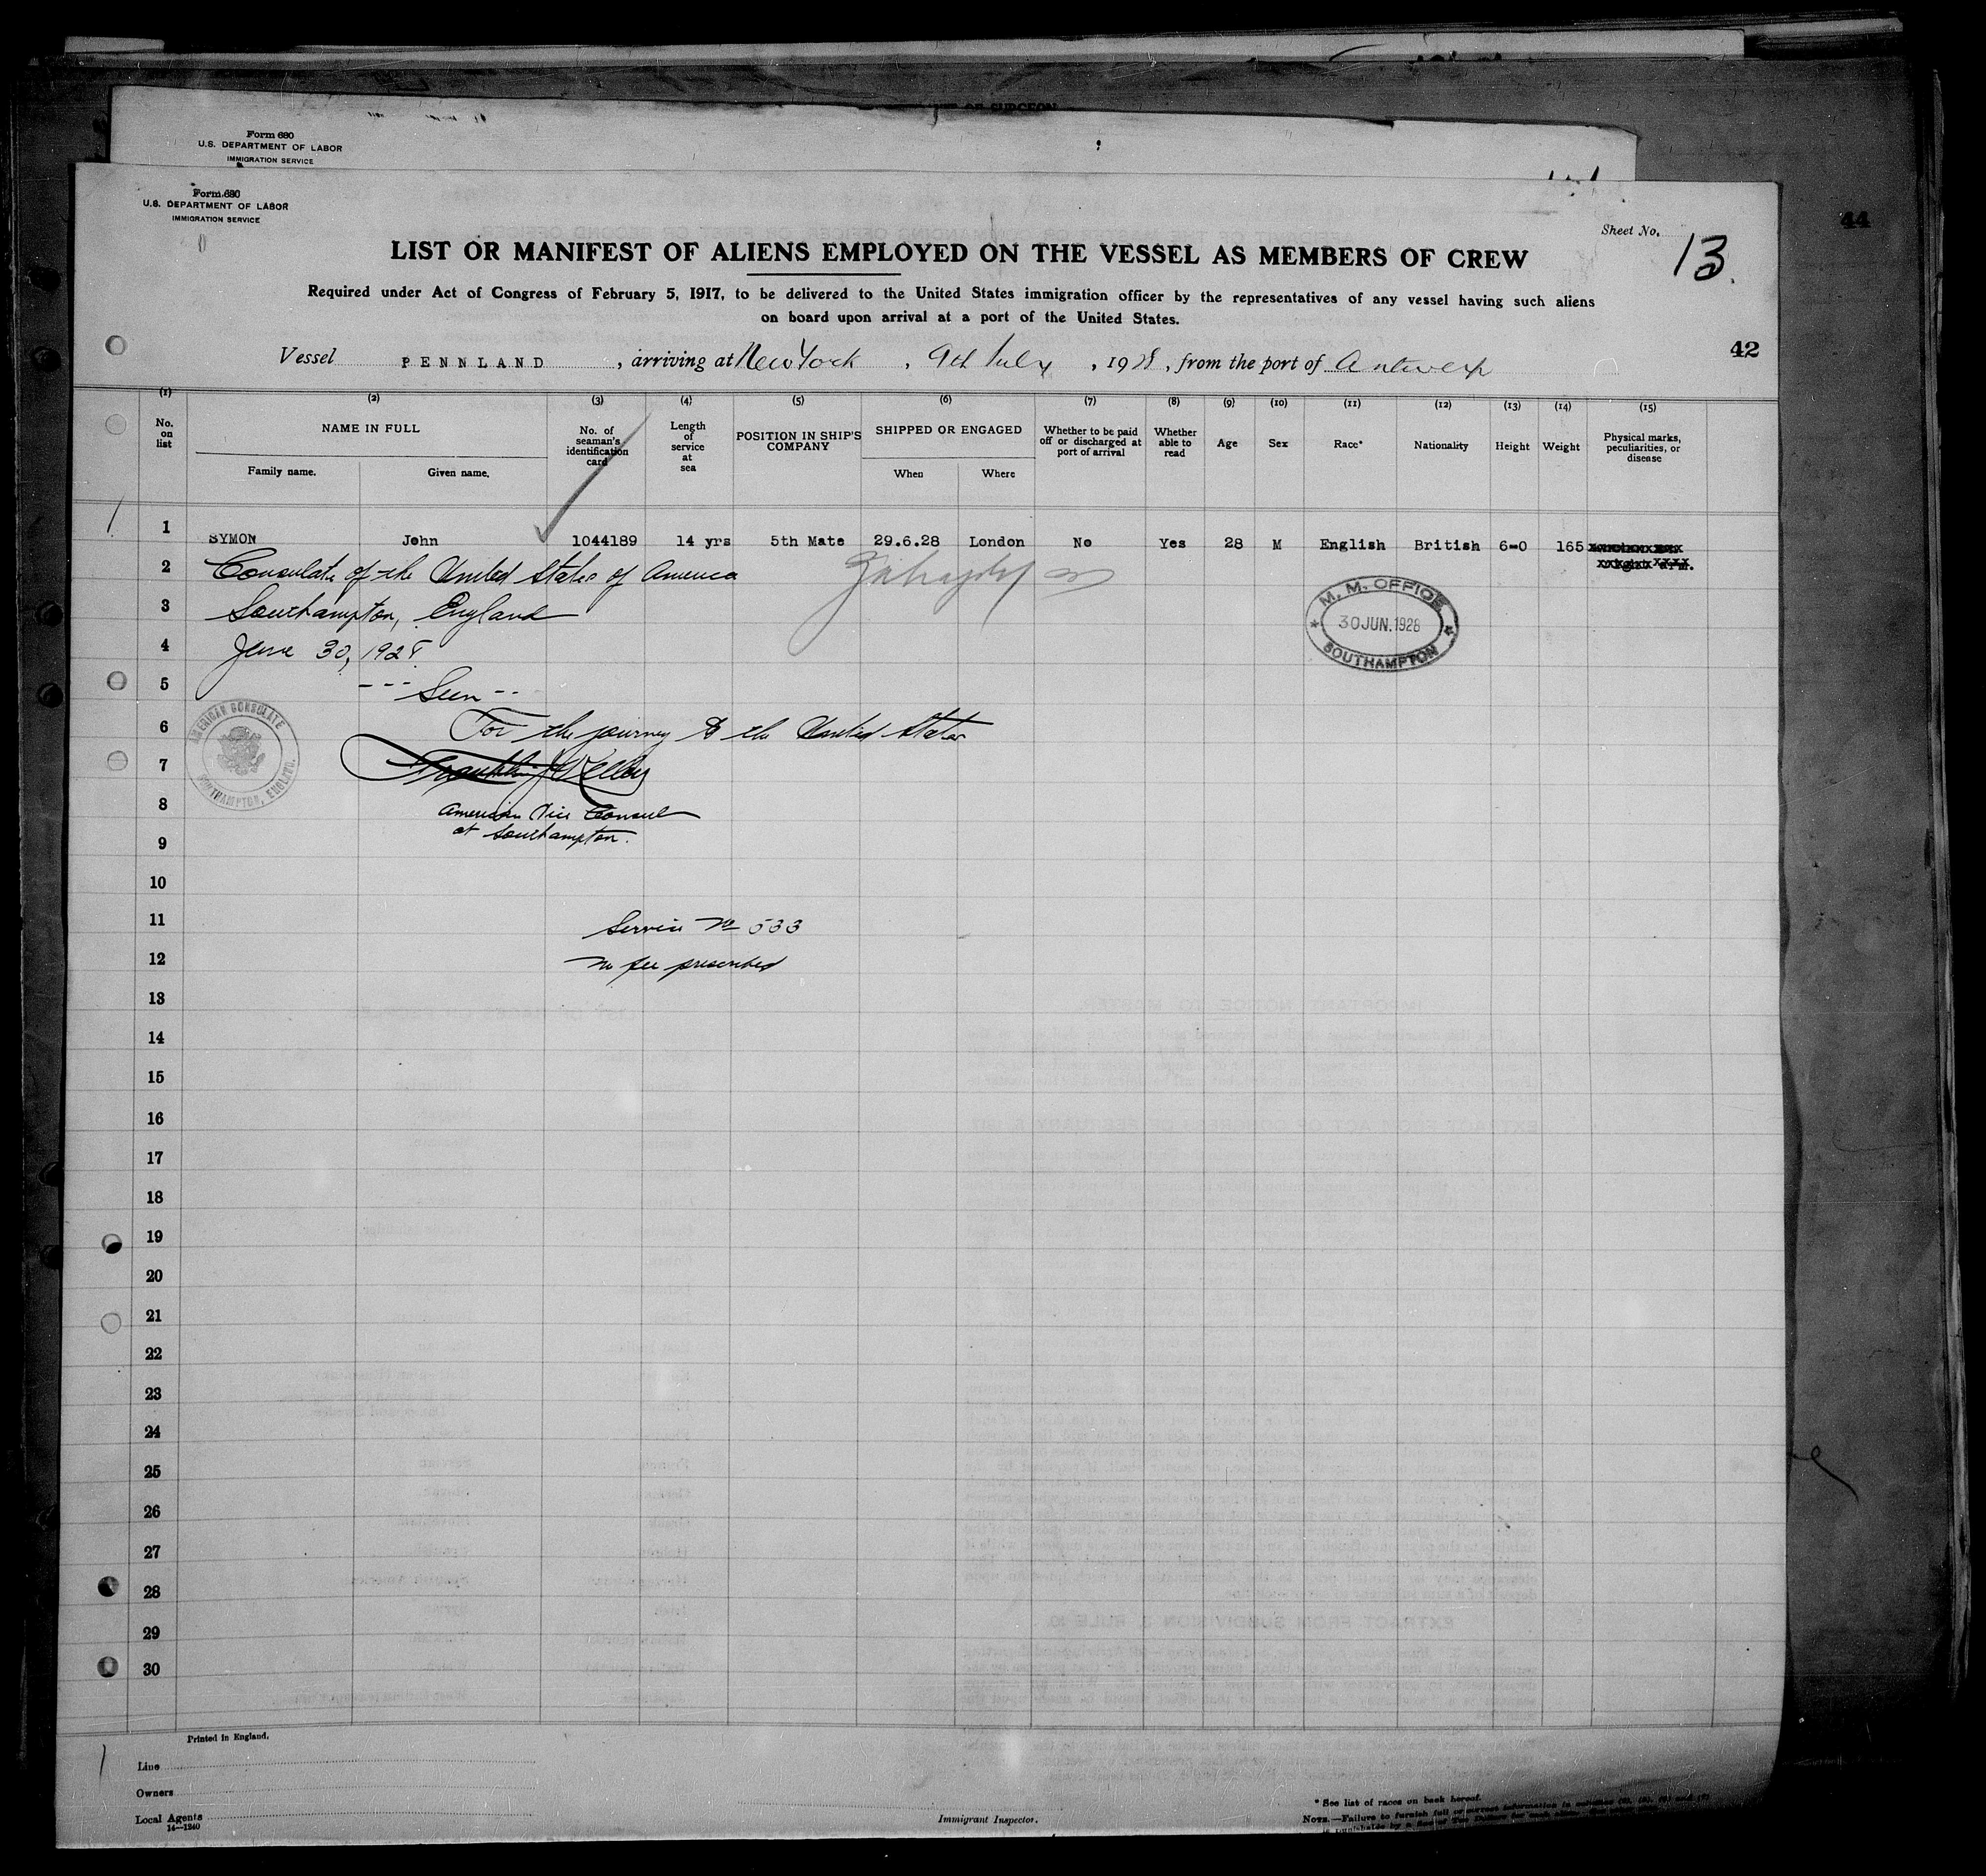 Form 680
U.S. DEPARTMENT OF LABOR
IMMIGRATION SERVICE
Form 680
U.S. DEPARTMENT OF LABOR
IMMIGRATION SERVICE
Sheet No. 13.
44
LIST OR MANIFEST OF ALIENS EMPLOYED ON THE VESSEL AS MEMBERS OF CREW
Required under Act of Congress of February 5, 1917, to be delivered to the United States immigration officer by the representatives of any vessel having such aliens
on board upon arrival at a port of the United States.
42
Vessel PENNLAND, arriving at New York, 9th July, 1928, from the port of Antwerp
(1) (2) (3) (4) (5) (6) (7) (8) (9) (10) (11) (12) (13) (14) (15)
No. on list NAME IN FULL No. of seaman's identification card Length of service at sea POSITION IN SHIP'S COMPANY SHIPPED OR ENGAGED Whether to be paid off or discharged at port of arrival Whether able to read Age Sex Race* Nationality Height Weight Physical marks, peculiarities, or disease
Family name. Given name. When Where
1 SYMON John 1044189 14 yrs 5th Mate 29.6.28 London No Yes 28 M English British 6-0 165
2 Consulate of the United States of America
3 Southampton, England
4 June 30, 1928
M. M. OFFICE
30 JUN. 1928
SOUTHAMPTON
5 --- Seen --
6 For the journey to the United States
AMERICAN CONSULATE
SOUTHAMPTON, ENGLAND.
7 Franklin
8 American Vice Consul
9 at Southampton.
10
11 Service No 533
12 no fee prescribed
13
14
15
16
17
18
19
20
21
22
23
24
25
26
27
28
29
30
Printed in England.
Line
Owners
Local Agents
14—1240
Immigrant Inspector.
* See list of races on back hereof.
NOTE.—Failure to furnish full or correct information in